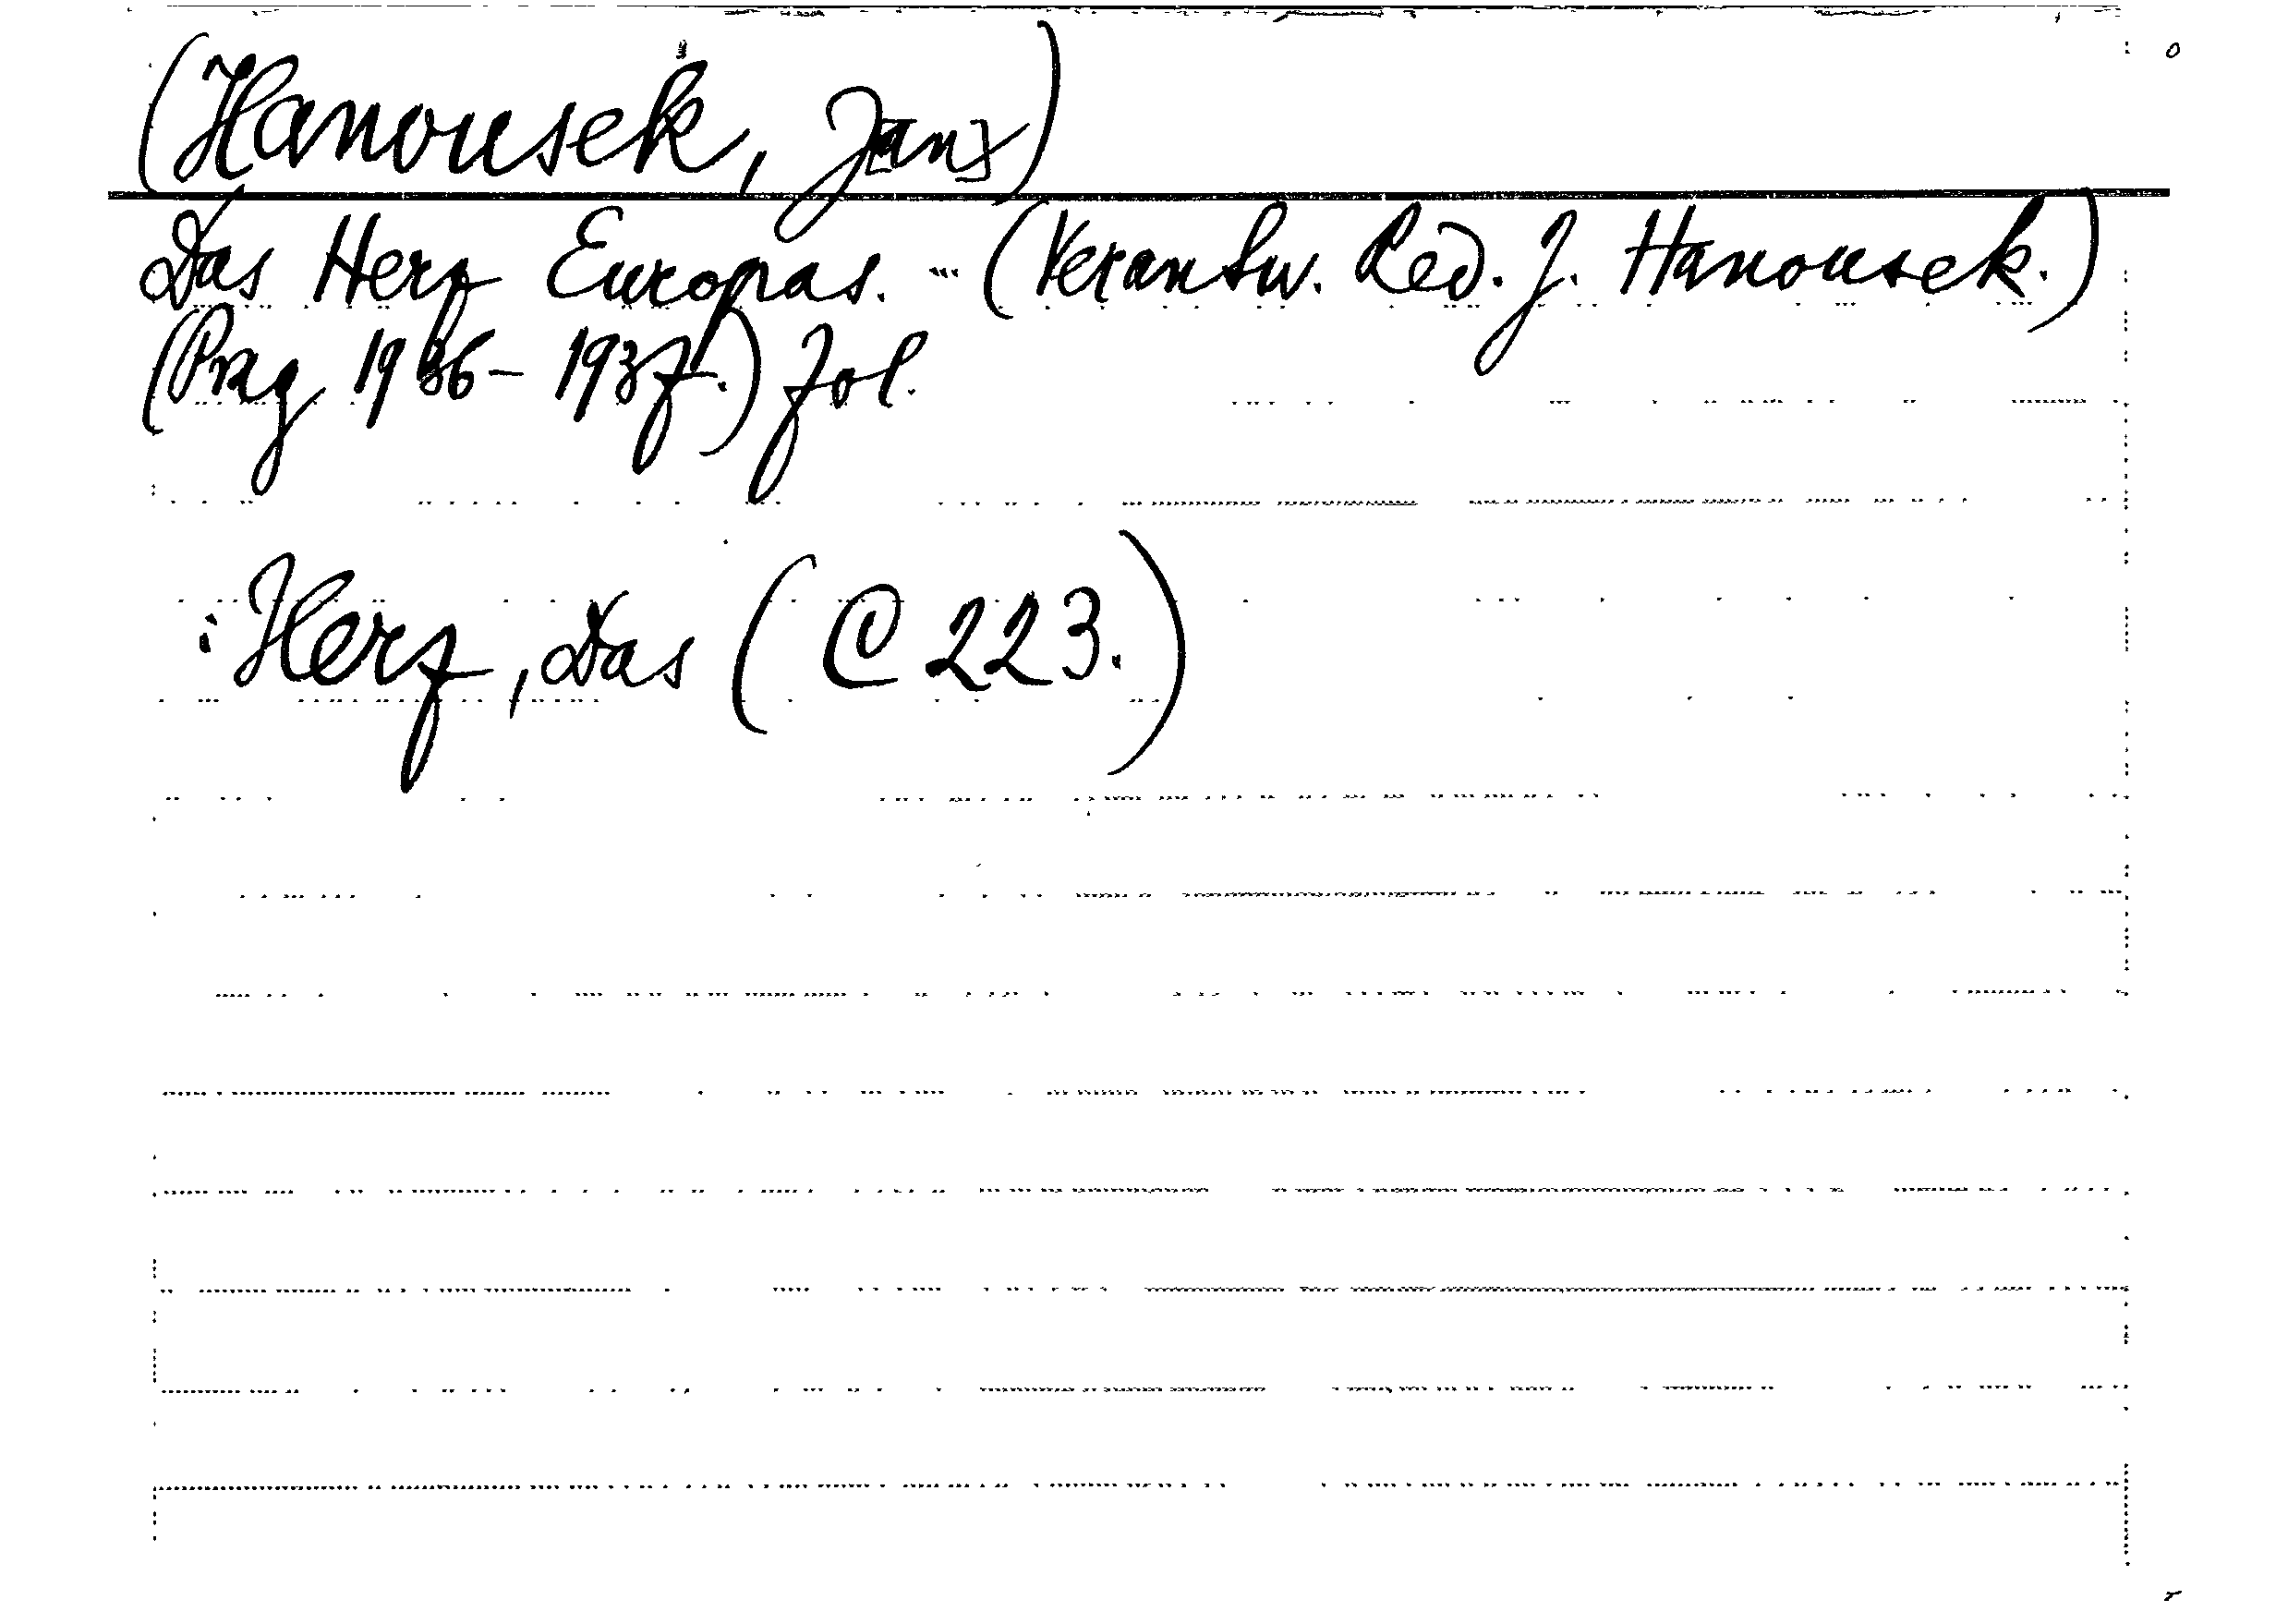 (Hanousek, J[an])
Das Herz Europas. ... (Verantw. Red. J. Hanousek.)
(Prag 1936-1937.) fol.
: Herz, Das (C 223.)